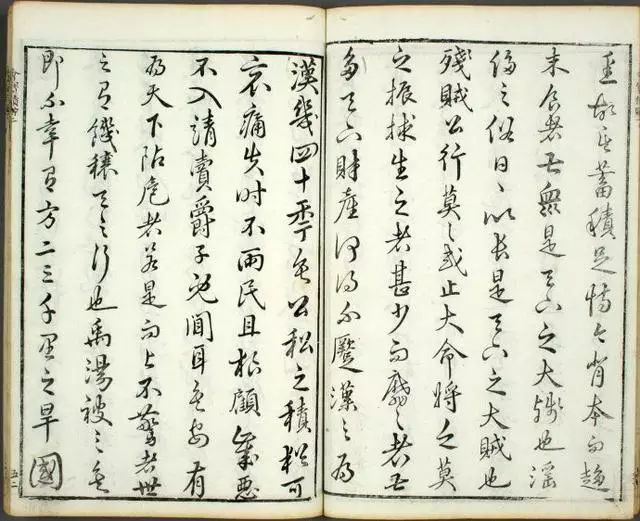 故其蓄積足恃今背本而趨
末食者甚眾是天下之大殘也淫
侈之俗日日以長是天下之大賊也
殘賊公行莫之或止大命將泛莫
之振捄生之者甚少而靡之者甚
多天下財產何得不蹷漢之為
漢幾四十年矣公私之積猶可
哀痛失時不雨民且狼顧歲惡
不入請賣爵子既聞耳矣安有
為天下阽危者若是而上不驚者世
之有饑穰天之行也禹湯被之矣
即不幸有方二三千里之旱國